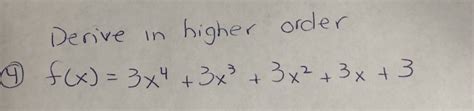 Derive in higher order
④ f(x) = 3x⁴ + 3x³ + 3x² + 3x + 3